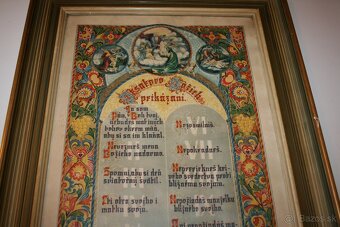 Desatoro Božích
prikázaní.
Ja som
Pán, Boh tvoj,
nebudeš mať iných
bohov okrem mňa,
aby si sa im klaňal.
Nevezmeš mena
Božieho nadarmo.
Spomni, aby si deň
sviatočný svätil.
Cti otca svojho i
matku svoju.
Nezosmilniš.
Nepokradneš.
Neprerieknеš kri-
vého svedectva proti
blížnemu svojmu.
Nepožiadaš manželku
blížneho svojho.
Ani nepožiadaš ma-
bazos.sk